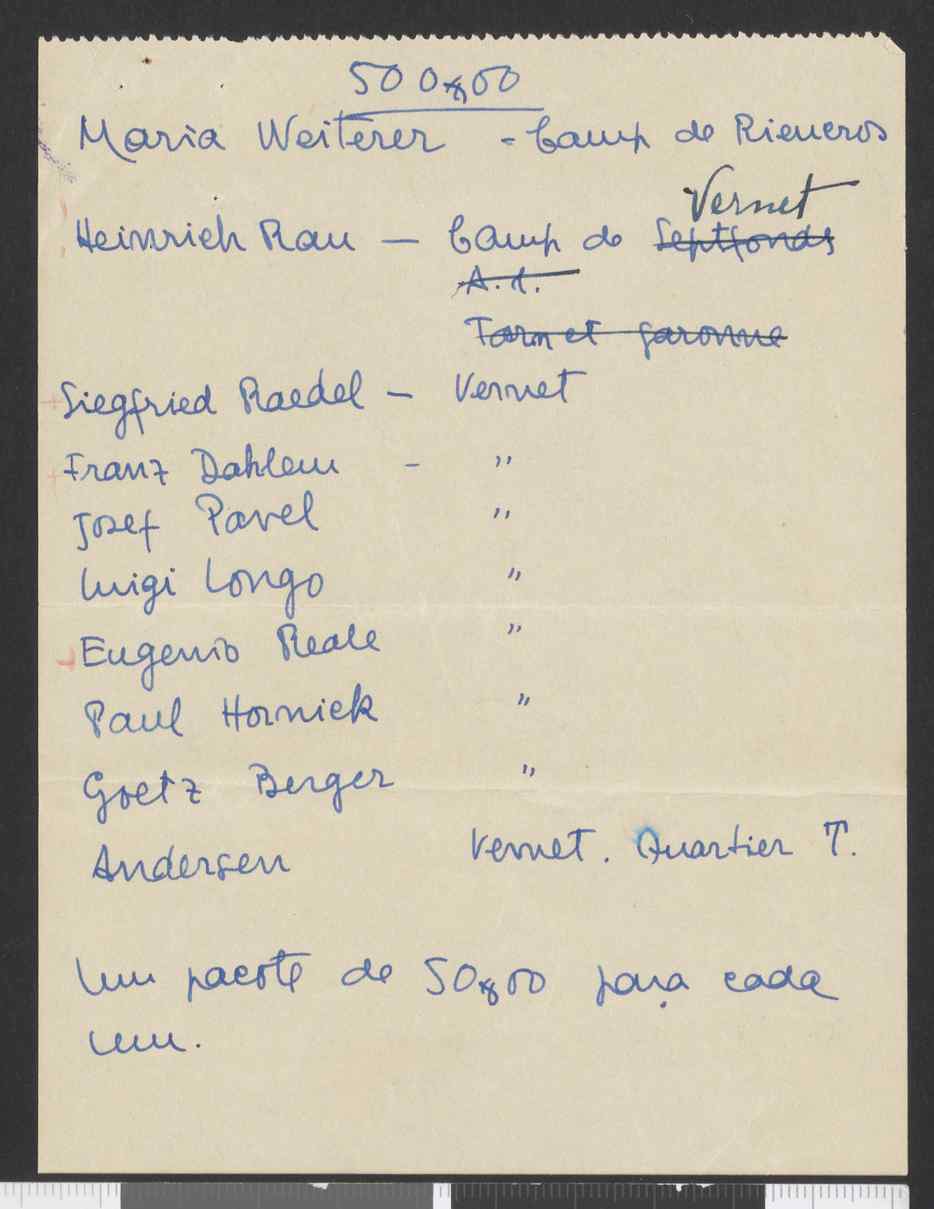 500$00
Maria Weiterer - Camp de Rieucros
Vernet
Heinrich Rau — Camp de Septfonds
A. d.
Tarn et garonne
Siegfried Raedel — Vernet
Franz Dahlem - "
Josef Pavel "
Luigi Longo "
Eugenio Reale "
Paul Hornick "
Goetz Berger "
Andersen Vernet. Quartier T.
Um pacote de 50$00 para cada
um.